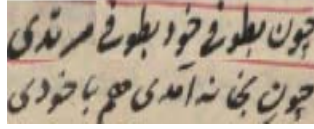 چون بطوفی خود بطوفی مرتدی
چون بخانه آمدی هم با خودی